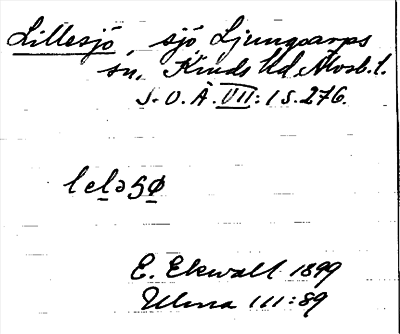 Lillesjö, sjö, Ljungsarps
sn, Kinds hd, Älvsb. l.
S.O.Ä. VII:1 s. 276.
leləʂø
E. Ekwall 1899
Ulma 111:89